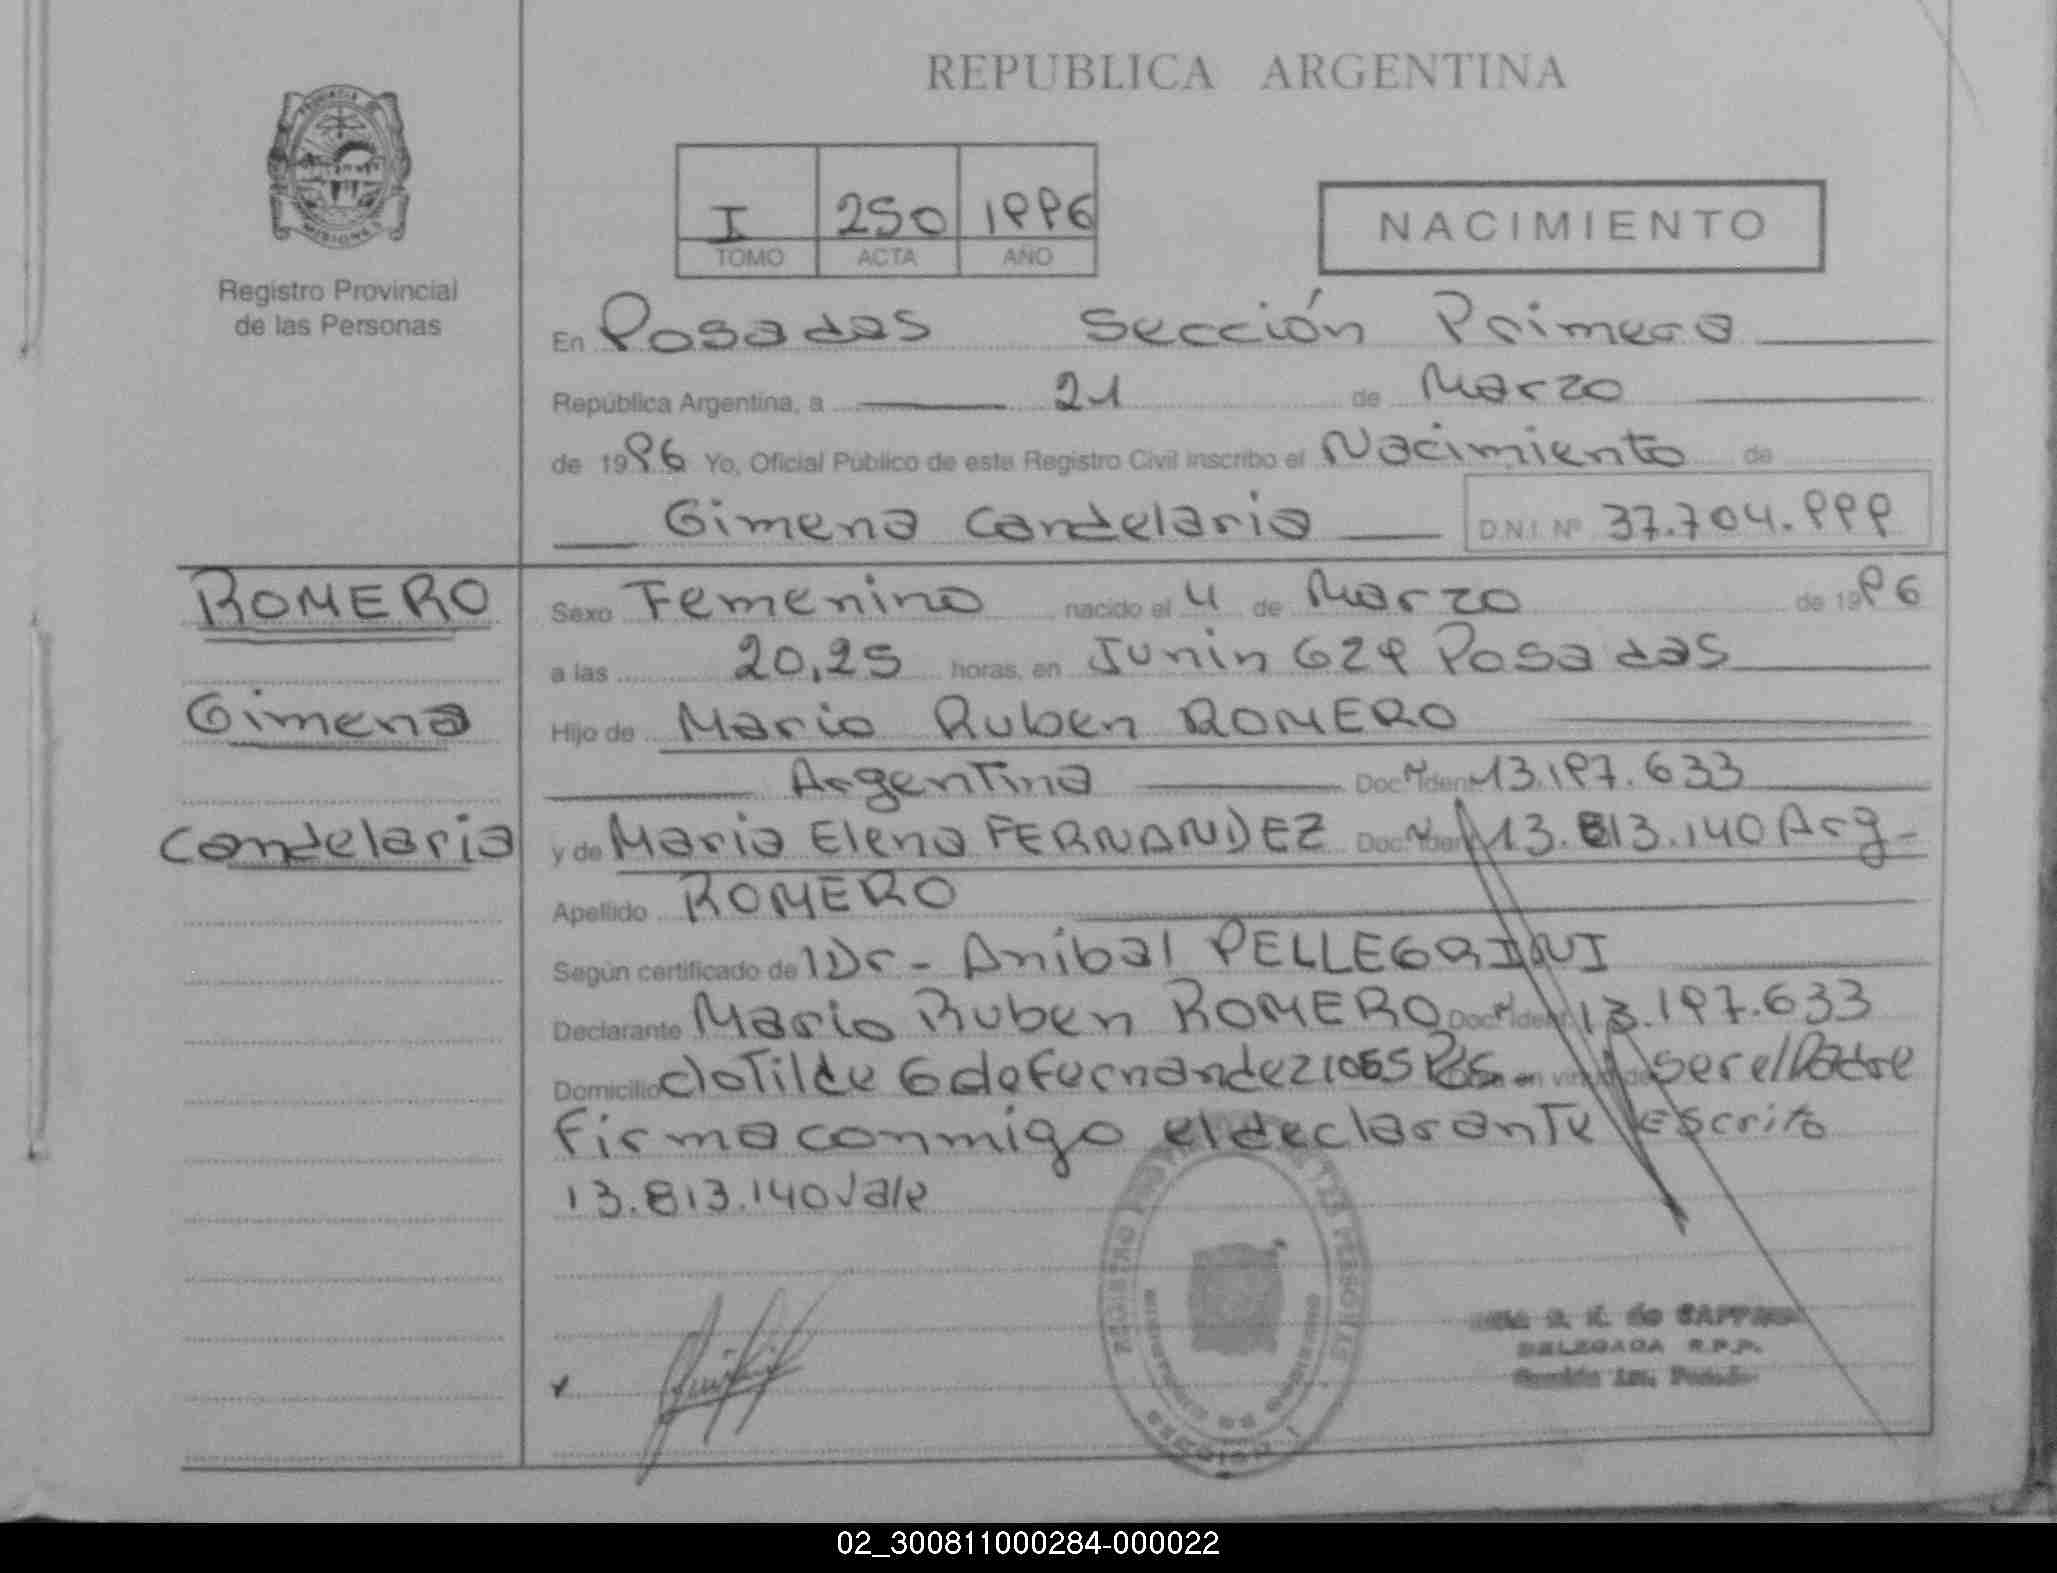 REPUBLICA ARGENTINA
PROVINCIA DE
MISIONES
Registro Provincial
de las Personas
I 250 1996
TOMO ACTA AÑO
NACIMIENTO
En Posadas Sección Primera
República Argentina, a 21 de Marzo
de 1996 Yo, Oficial Público de este Registro Civil inscribo el Nacimiento de
Gimena Candelaria D.N.I. Nº 37.704.999
ROMERO
Gimena
Candelaria
Sexo Femenino nacido el 4 de Marzo de 1996
a las 20,25 horas, en Junin 629 Posadas
Hijo de Mario Ruben ROMERO
Argentina Doc. Ident. 13.197.633
y de Maria Elena FERNANDEZ Doc. Ident. 13.813.140 Arg-
Apellido ROMERO
Según certificado de Dr- Anibal PELLEGRINI
Declarante Mario Ruben ROMERO Doc. Ident. 13.197.633
Domicilio Clotilde G de Fernandez 1055 Pdas- en virtud de ser el Padre
Firma conmigo el declarante Escrito
13.813.140 Vale
DELEGADA R.P.P.
02_300811000284-000022